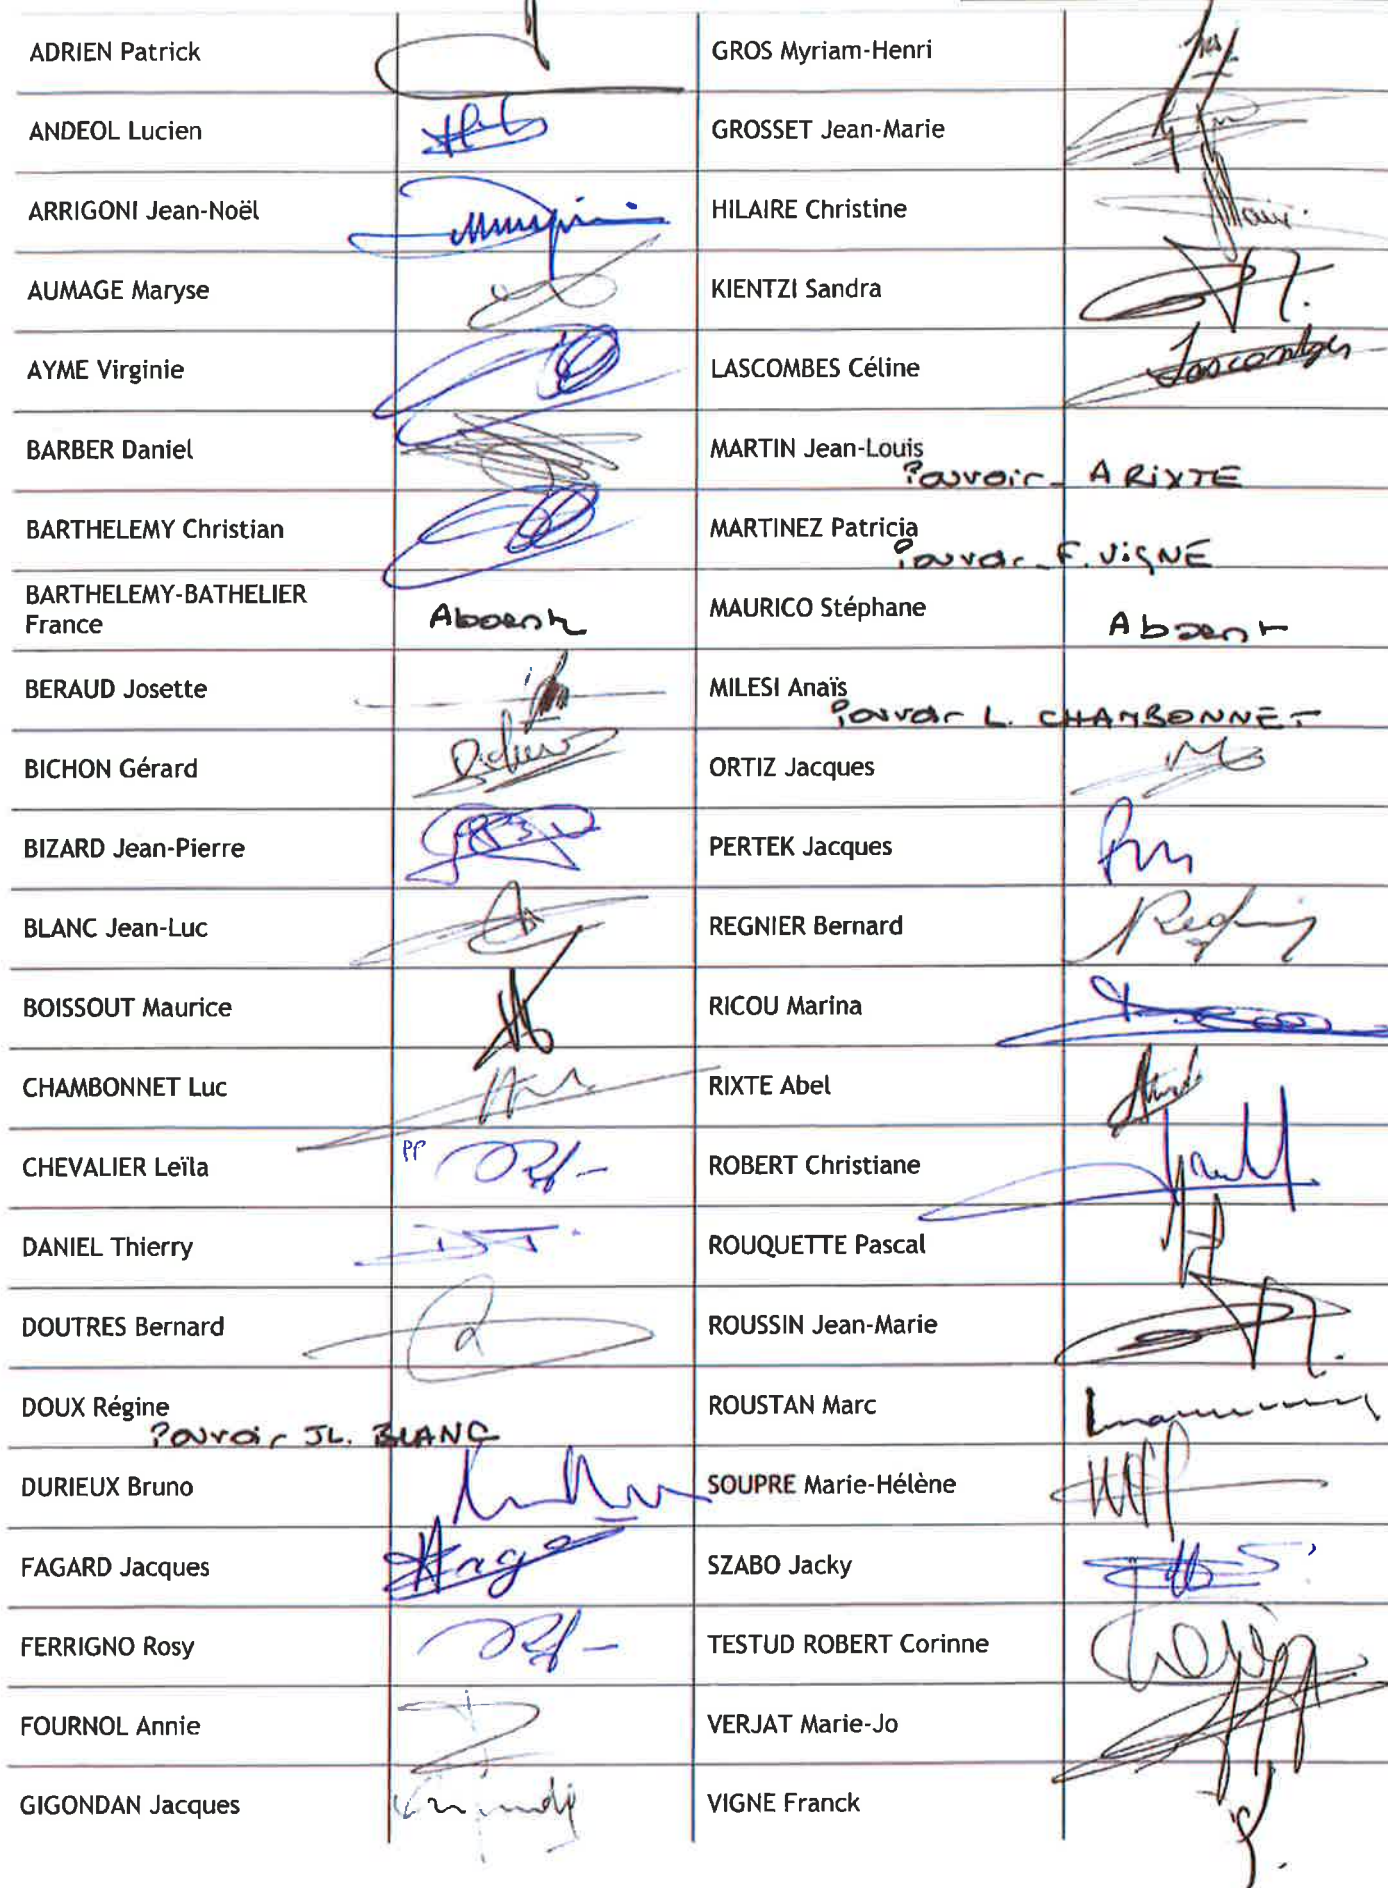 ADRIEN Patrick
GROS Myriam-Henri
ANDEOL Lucien
GROSSET Jean-Marie
ARRIGONI Jean-Noël
HILAIRE Christine
AUMAGE Maryse
KIENTZI Sandra
AYME Virginie
LASCOMBES Céline
Lascombes
BARBER Daniel
MARTIN Jean-Louis
Pouvoir - A RiXTE
BARTHELEMY Christian
MARTINEZ Patricia
Pouvoir - F. ViGNE
BARTHELEMY-BATHELIER
France
Absent
MAURICO Stéphane
Absent
BERAUD Josette
MILESI Anaïs
Pouvoir L. CHAMBONNET
BICHON Gérard
ORTIZ Jacques
BIZARD Jean-Pierre
PERTEK Jacques
BLANC Jean-Luc
REGNIER Bernard
BOISSOUT Maurice
RICOU Marina
CHAMBONNET Luc
RIXTE Abel
CHEVALIER Leïla
PP
ROBERT Christiane
DANIEL Thierry
ROUQUETTE Pascal
DOUTRES Bernard
ROUSSIN Jean-Marie
DOUX Régine
Pouvoir JL. BLANC
ROUSTAN Marc
DURIEUX Bruno
SOUPRE Marie-Hélène
FAGARD Jacques
SZABO Jacky
FERRIGNO Rosy
TESTUD ROBERT Corinne
FOURNOL Annie
VERJAT Marie-Jo
GIGONDAN Jacques
VIGNE Franck